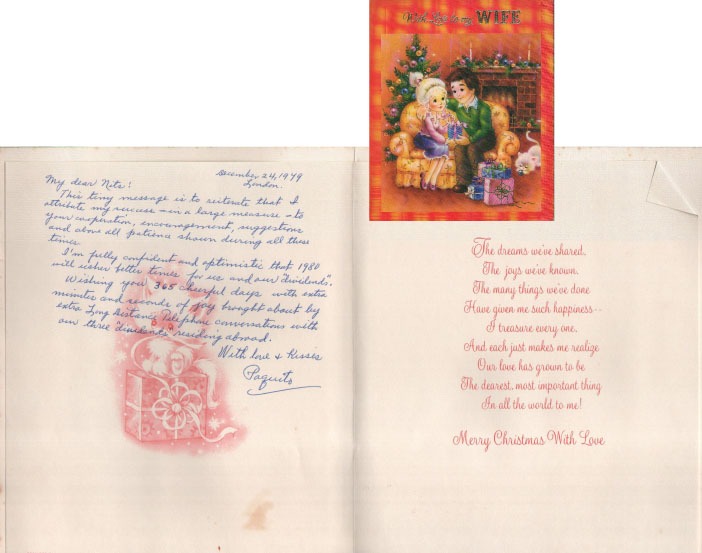 With Love to my WIFE
December 24, 1979
London.
My dear Nets:
This tiny message is to reiterate that I
attribute my success - in a large measure - to
your cooperation, encouragement, suggestions
and above all patience shown during all these
times.
I'm fully confident and optimistic that 1980
will usher better times for us and our "dividends".
Wishing you 365 cheerful days with extra
minutes and seconds of joy brought about by
extra Long Distance Telephone conversations with
our three "dividends" residing abroad.
With love & Kisses
Paquito
The dreams we've shared,
The joys we've known,
The many things we've done
Have given me such happiness--
I treasure every one,
And each just makes me realize
Our love has grown to be
The dearest, most important thing
In all the world to me!
Merry Christmas With Love